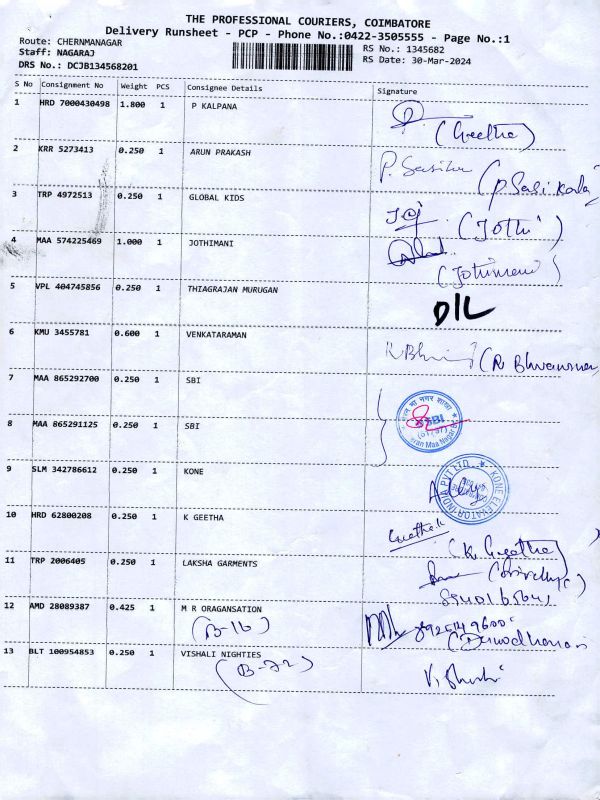 THE PROFESSIONAL COURIERS, COIMBATORE
Delivery Runsheet - PCP - Phone No.:0422-3505555 - Page No.:1
Route: CHERNMANAGAR
Staff: NAGARAJ
DRS No.: DCJB134568201
RS No.: 1345682
RS Date: 30-Mar-2024
S No Consignment No Weight PCS Consignee Details Signature
1 HRD 7000430498 1.800 1 P KALPANA (Geetha)
2 KRR 5273413 0.250 1 ARUN PRAKASH P. Sasika (P Sasi Kala)
3 TRP 4972513 0.250 1 GLOBAL KIDS Joj (Jothi)
4 MAA 574225469 1.000 1 JOTHIMANI
(Jothimani)
5 VPL 404745856 0.250 1 THIAGRAJAN MURUGAN D/L
6 KMU 3455781 0.600 1 VENKATARAMAN
7 MAA 865292700 0.250 1 SBI
8 MAA 865291125 0.250 1 SBI
SBI
9 SLM 342786612 0.250 1 KONE
KONE ELEVATOR INDIA PVT LTD
10 HRD 62800208 0.250 1 K GEETHA Geetha.k
(K. Geetha)
11 TRP 2006405 0.250 1 LAKSHA GARMENTS
12 AMD 28089387 0.425 1 M R ORAGANSATION
(B-16)
13 BLT 100954853 0.250 1 VISHALI NIGHTIES
(B-22)